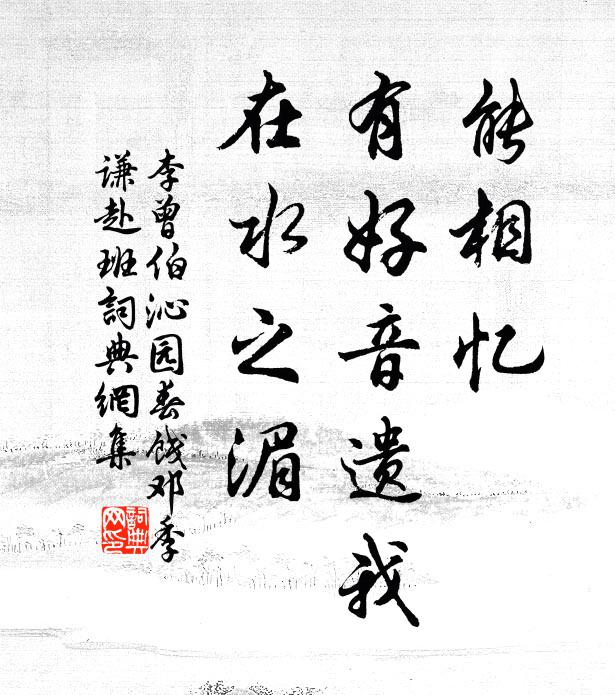 能相忆
有好音遗我
在水之湄
李曾伯沁园春饯邓季
谦赴班詞典網集
詞典
网